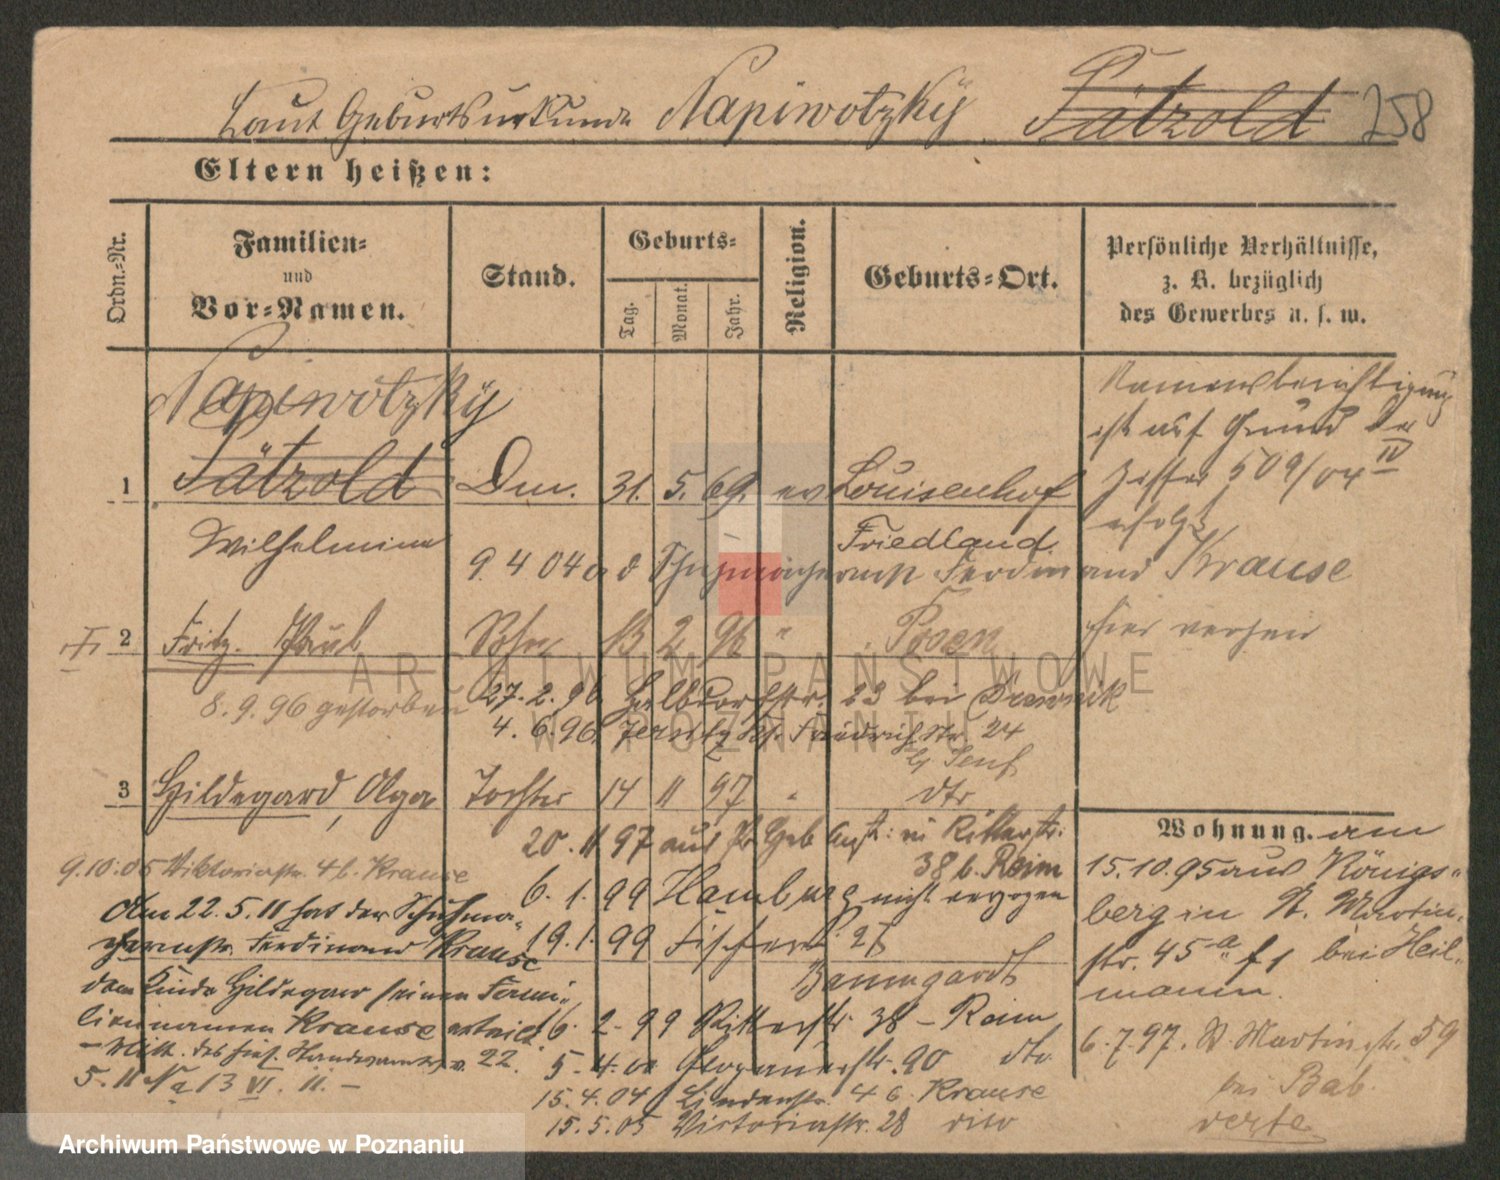 Laut Geburtsurkunde Napiwotzky Pätzold 258
Eltern heißen:
Ordn.-Nr.
Familien- und Vor-Namen.
Stand.
Geburts-
Tag. Monat. Jahr.
Religion.
Geburts-Ort.
Persönliche Verhältnisse,
z. B. bezüglich
des Gewerbes u. s. w.
Napiwotzky
1 Pätzold Dm. 31. 5. 69. ev Louisenhof
Wilhelmine Friedland
Namensberichtigung
ist auf Grund der
509/04 IV
erfolgt
9. 4 04 Schuhmacher Ferdinand Krause
2 Fritz. Paul Sohn 13 2 96 " Posen
hier
8.9.96 gestorben
27. 2. 96 Halbdorfstr. 23 bei
4. 6. 96 Friedrichstr. 24
b/ Senf
3 Hildegard, Olga Tochter 14 11 97 " dto
20. 11 97 aus Geb Anst: in Ritterstr.
38 b. Reim
6. 1. 99 Hamburg nicht
19. 1. 99 Fischerei 25
Baumgardt
16. 2. 99 Ritterstr. 38 – Reim
5. 4. 00 Glogauerstr. 90 dto
15. 4. 04 Lindenstr. 4 b. Krause
15. 5. 05 Victoriastr. 28 dito
9.10.05 Viktoriastr. 4 b. Krause
Am 22. 5. 11 hat der Schuhma-
chermstr. Ferdinand Krause
dem Kinde Hildegard seinen Fami-
liennamen Krause erteilt.
22.
5. 11 No 13 VI. 11. –
Wohnung. am
15.10.95 aus Königs-
berg in St. Martin-
str. 45a f 1 bei Heil-
mann.
6. 7. 97. St. Martinstr. 59
bei Bab.
ARCHIWUM PAŃSTWOWE
W POZNANIU
Archiwum Państwowe w Poznaniu